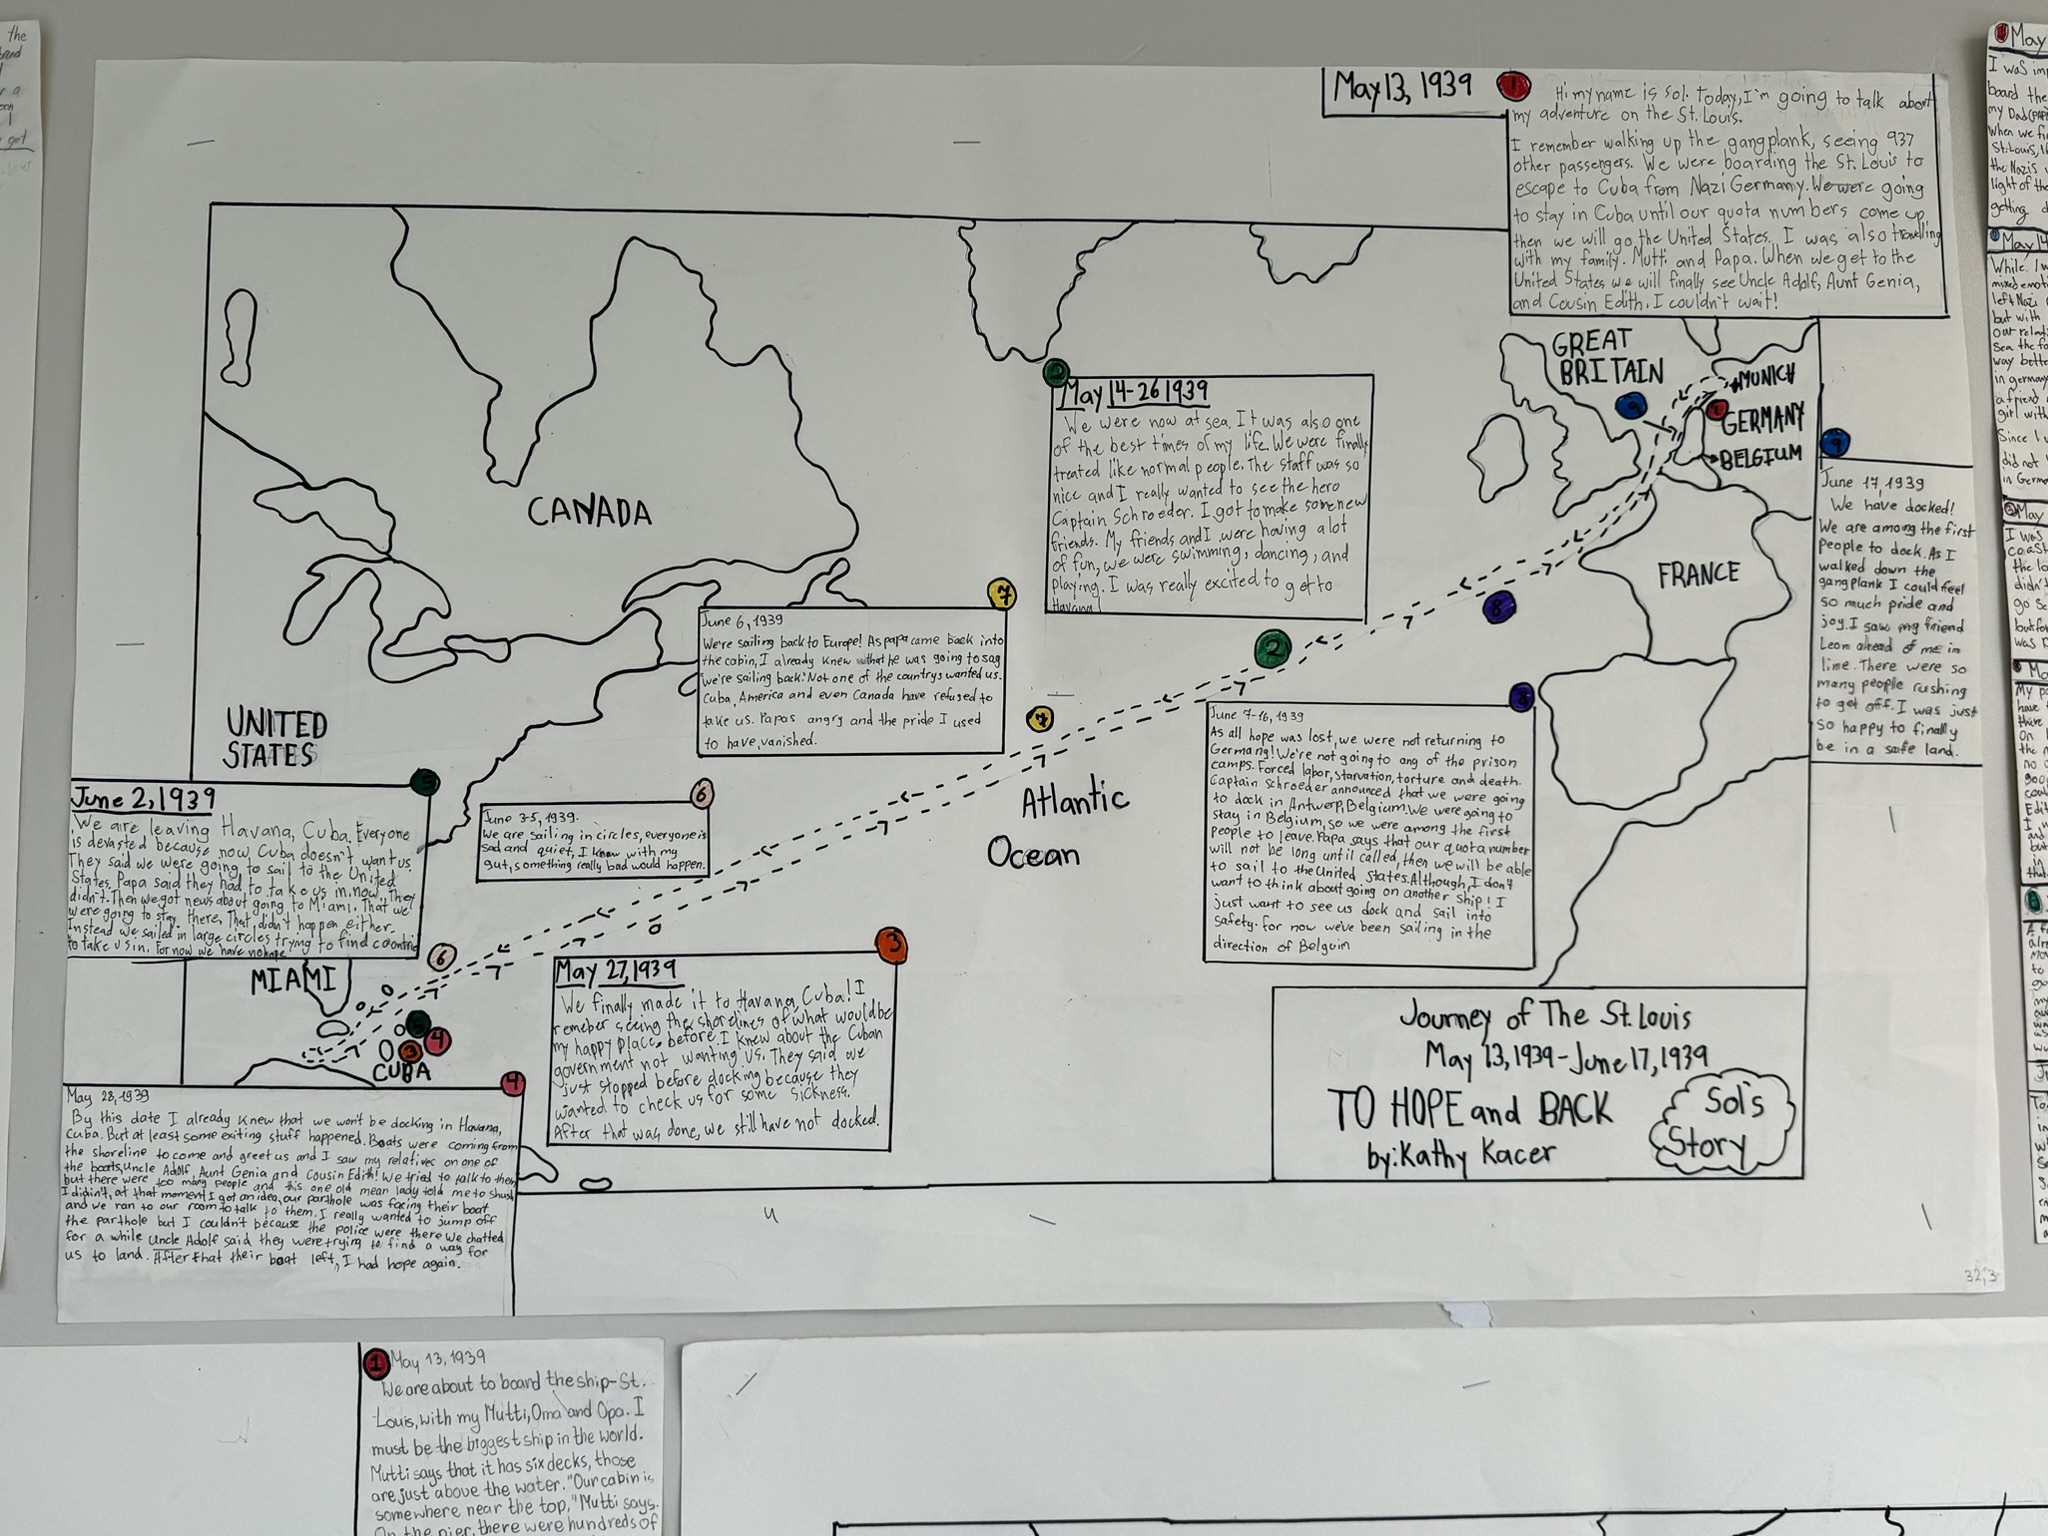 May 13, 1939
1
Hi my name is Sol. Today, I'm going to talk about
my adventure on the St. Louis.
I remember walking up the gangplank, seeing 937
other passengers. We were boarding the St. Louis to
escape to Cuba from Nazi Germany. We were going
to stay in Cuba until our quota numbers come up,
then we will go the United States. I was also travelling
with my family. Mutti and Papa. When we get to the
United States we will finally see Uncle Adolf, Aunt Genia,
and Cousin Edith. I couldn't wait!
GREAT
BRITAIN
MUNICH
9
1
GERMANY
BELGIUM
FRANCE
CANADA
UNITED
STATES
Atlantic
Ocean
MIAMI
CUBA
2
May 14-26 1939
We were now at sea. It was also one
of the best times of my life. We were finally
treated like normal people. The staff was so
nice and I really wanted to see the hero
Captain Schroeder. I got to make some new
friends. My friends and I were having a lot
of fun, we were swimming, dancing, and
playing. I was really excited to get to
Havana!
9
June 17, 1939
We have docked!
We are among the first
people to dock. As I
walked down the
gangplank I could feel
so much pride and
joy. I saw my friend
Leon ahead of me in
lime. There were so
many people rushing
to get off. I was just
so happy to finally
be in a safe land.
7
June 6, 1939
We're sailing back to Europe! As papa came back into
the cabin, I already knew that he was going to say
"we're sailing back." Not one of the countrys wanted us.
Cuba, America and even Canada have refused to
take us. Papas angry and the pride I used
to have, vanished.
8
2
7
8
June 7-16, 1939
As all hope was lost, we were not returning to
Germany! We're not going to any of the prison
camps. Forced labor, starvation, torture and death.
Captain Schroeder announced that we were going
to dock in Antwerp, Belgium. We were going to
stay in Belgium, so we were among the first
people to leave. Papa says that our quota number
will not be long until called, then we will be able
to sail to the United States. Although, I don't
want to think about going on another ship! I
just want to see us dock and sail into
safety. For now we've been sailing in the
direction of Belguim
5
June 2, 1939
We are leaving Havana, Cuba. Everyone
is devasted because now Cuba doesn't want us.
They said we were going to sail to the United
States. Papa said they had to take us in now. They
didn't. Then we got news about going to Miami. That we
were going to stay there, That didn't happen either.
Instead we sailed in large circles trying to find countries
to take us in. For now we have no hope.
6
June 3-5, 1939.
We are sailing in circles, everyone is
sad and quiet, I know with my
gut, something really bad would happen.
6
5
4
3
3
May 27, 1939
We finally made it to Havana, Cuba! I
remeber seeing the shorelines of what would be
my happy place, before. I knew about the Cuban
government not wanting us. They said we
just stopped before docking because they
wanted to check us for some sickness.
After that was done, we still have not docked.
4
May 28, 1939
By this date I already knew that we won't be docking in Havana,
Cuba. But at least some exiting stuff happened. Boats were coming from
the shoreline to come and greet us and I saw my relatives on one of
the boats, Uncle Adolf, Aunt Genia and Cousin Edith! We tried to talk to them
but there were too many people and this one old mean lady told me to shush
I didin't, at that moment I got an idea, our parthole was facing their boat
and we ran to our room to talk to them. I really wanted to jump off
the parthole but I couldn't because the police were there we chatted
for a while Uncle Adolf said they were trying to find a way for
us to land. After that their boat left, I had hope again.
Journey of The St. Louis
May 13, 1939-June 17, 1939
TO HOPE and BACK
by: Kathy Kacer
Sol's
Story
1
May 13, 1939
We are about to board the ship-St.
Louis, with my Mutti, Oma and Opa. I
must be the biggest ship in the world.
Mutti says that it has six decks, those
are just above the water. "Our cabin is
somewhere near the top," Mutti says.
On the pier, there were hundreds of